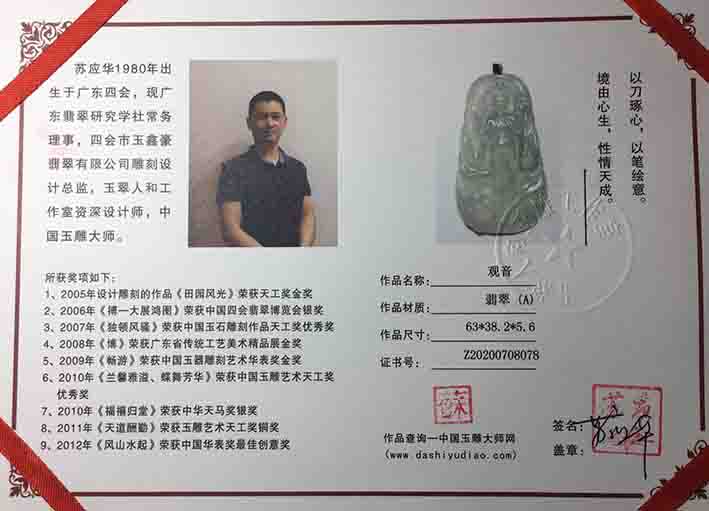 苏应华1980年出
生于广东四会，现广
东翡翠研究学社常务
理事，四会市玉鑫豪
翡翠有限公司雕刻设
计总监，玉翠人和工
作室资深设计师，中
国玉雕大师。
以刀琢心，以笔绘意。
境由心生，性情天成。
所获奖项如下：
1、2005年设计雕刻的作品《田园风光》荣获天工奖金奖
2、2006年《搏一大展鸿图》荣获中国四会翡翠博览会银奖
3、2007年《独领风骚》荣获中国玉石雕刻作品天工奖优秀奖
4、2008年《博》荣获广东省传统工艺美术精品展金奖
5、2009年《畅游》荣获中国玉器雕刻艺术华表奖金奖
6、2010年《兰馨雅溢、蝶舞芳华》荣获中国玉雕艺术天工奖
优秀奖
7、2010年《福禧归堂》荣获中华天马奖银奖
8、2011年《天道酬勤》荣获玉雕艺术天工奖铜奖
9、2012年《风山水起》荣获中国华表奖最佳创意奖
作品名称: 观音
作品材质: 翡翠 (A)
作品尺寸: 63*38.2*5.6
证书号: Z20200708078
作品查询一中国玉雕大师网
(www.dashiyudiao.com)
签名: 苏应华
盖章: